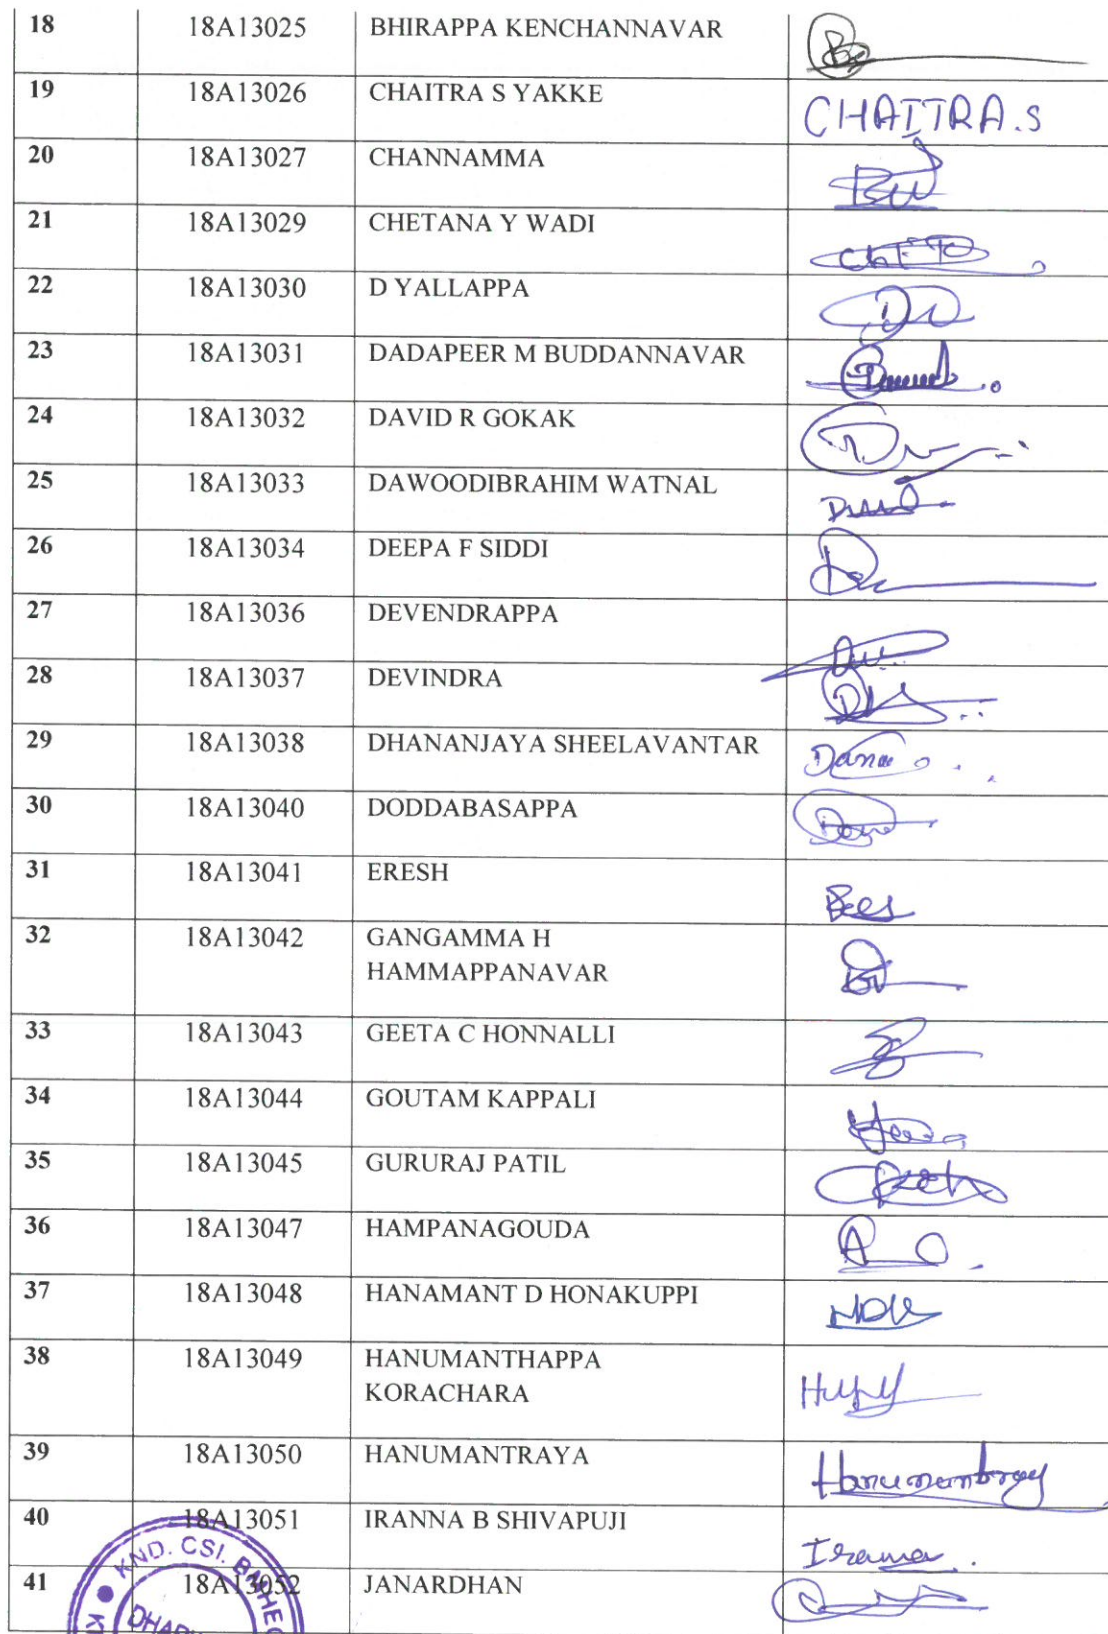 18 18A13025 BHIRAPPA KENCHANNAVAR
19 18A13026 CHAITRA S YAKKE CHAITRA.S
20 18A13027 CHANNAMMA
21 18A13029 CHETANA Y WADI
22 18A13030 D YALLAPPA
23 18A13031 DADAPEER M BUDDANNAVAR
24 18A13032 DAVID R GOKAK
25 18A13033 DAWOODIBRAHIM WATNAL
26 18A13034 DEEPA F SIDDI
27 18A13036 DEVENDRAPPA
28 18A13037 DEVINDRA
29 18A13038 DHANANJAYA SHEELAVANTAR
30 18A13040 DODDABASAPPA
31 18A13041 ERESH
32 18A13042 GANGAMMA H
HAMMAPPANAVAR
33 18A13043 GEETA C HONNALLI
34 18A13044 GOUTAM KAPPALI
35 18A13045 GURURAJ PATIL
36 18A13047 HAMPANAGOUDA
37 18A13048 HANAMANT D HONAKUPPI
38 18A13049 HANUMANTHAPPA
KORACHARA
39 18A13050 HANUMANTRAYA
40 18A13051 IRANNA B SHIVAPUJI
41 18A13052 JANARDHAN
KND. CSI.